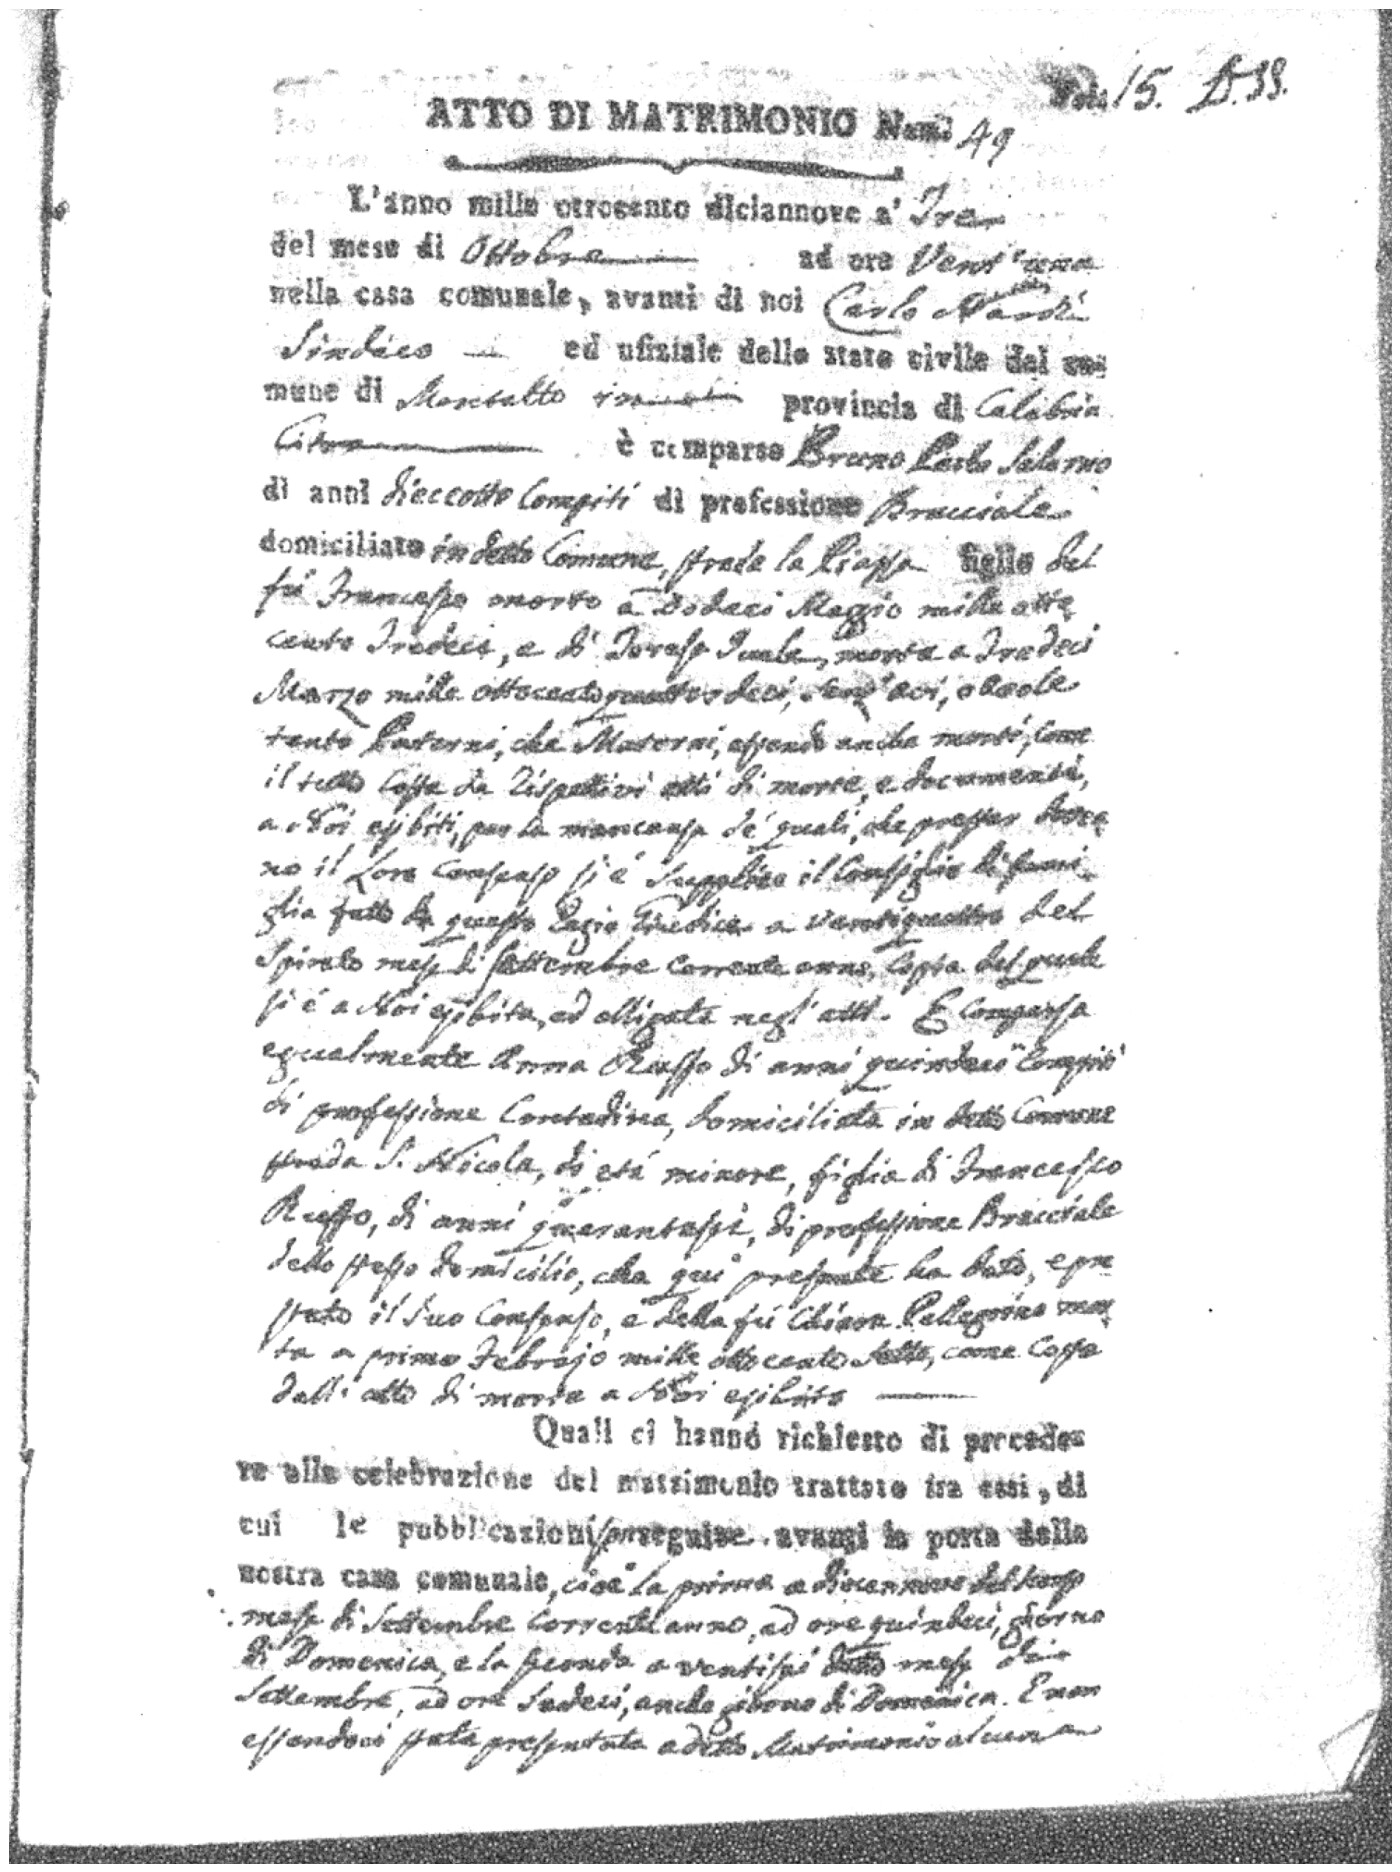 15.
ATTO DI MATRIMONIO Num. 49
L'anno mille ottocento diciannove a' Tre
del mese di Ottobre ad ore Vent'una
nella casa comunale, avanti di noi Carlo Nardi
Sindaco ed ufiziale dello stato civile del co=
mune di Montalto in provincia di Calabria
Citra è comparso Bruno Carlo Salerno
di anni dieciotto Compiti di professione Bracciale
domiciliato in detto Comune, strada la Piazza figlio del
fù Francesco morto a Dodeci Maggio mille otto
cento Tredeci, e di Teresa morta a Tredeci
Marzo mille ottocento quattordeci, senz'avi, o avole
tanto Paterni, che Materni, essendo anche morti, come
il tutto costa da rispettivi atti di morte, e documenti,
a Noi esibiti, per la mancanza de' quali, che prestar dovea
no il Loro Consenso si è Supplito il Consiglio di fami
glia fatto da questo Regio Giudice a ventiquattro del
Spirato mese di Settembre corrente anno, Copia del quale
si è a Noi esibita, ed alligata negl'atti. E Comparsa
egualmente Anna Ruffo di anni quindeci Compiti
di professione Contadina, domiciliata in detto Comune
strada S. Nicola, di età minore, figlia di Francesco
Ruffo, di anni quarantasei, di professione Bracciale
dello stesso domicilio, che qui presente ha dato, e pre
stato il suo Consenso, e della fù Chiara Pellegrino mor
ta a primo Febrajo mille ottocento sette, come costa
dall'atto di morte a Noi esibito
Quali ci hanno richiesto di procede=
re alla celebrazione del matrimonio trattato tra essi, di
cui le pubblicazioni son seguite avanti la porta della
nostra casa comunale, cioè la prima a diecannove del scorso
mese di Settembre corrente anno, ad ore quindeci, giorno
di Domenica, e la seconda a ventisei detto mese di
Settembre, ad ore Sedeci, anche giorno di Domenica. E non
essendoci stata presentata a detto Matrimonio alcuna